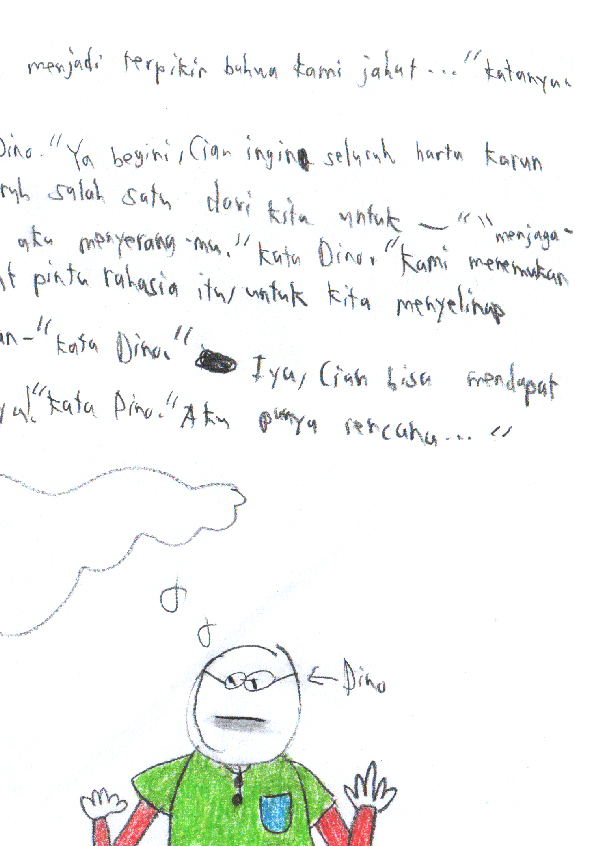 menjadi terpikir bahwa kami jahat..." katanya.
Dino. "Ya begini, Cian ingin seluruh harta karun
ruh salah satu dari kita untuk —" "menjaga-
aku menyerang-mu." kata Dino. "Kami menemukan
at pintu rahasia itu, untuk kita menyelinap
an-" kata Dino. " Iya, Cian bisa mendapat
ya!" kata Dino. "Aku punya rencana... "
← Dino